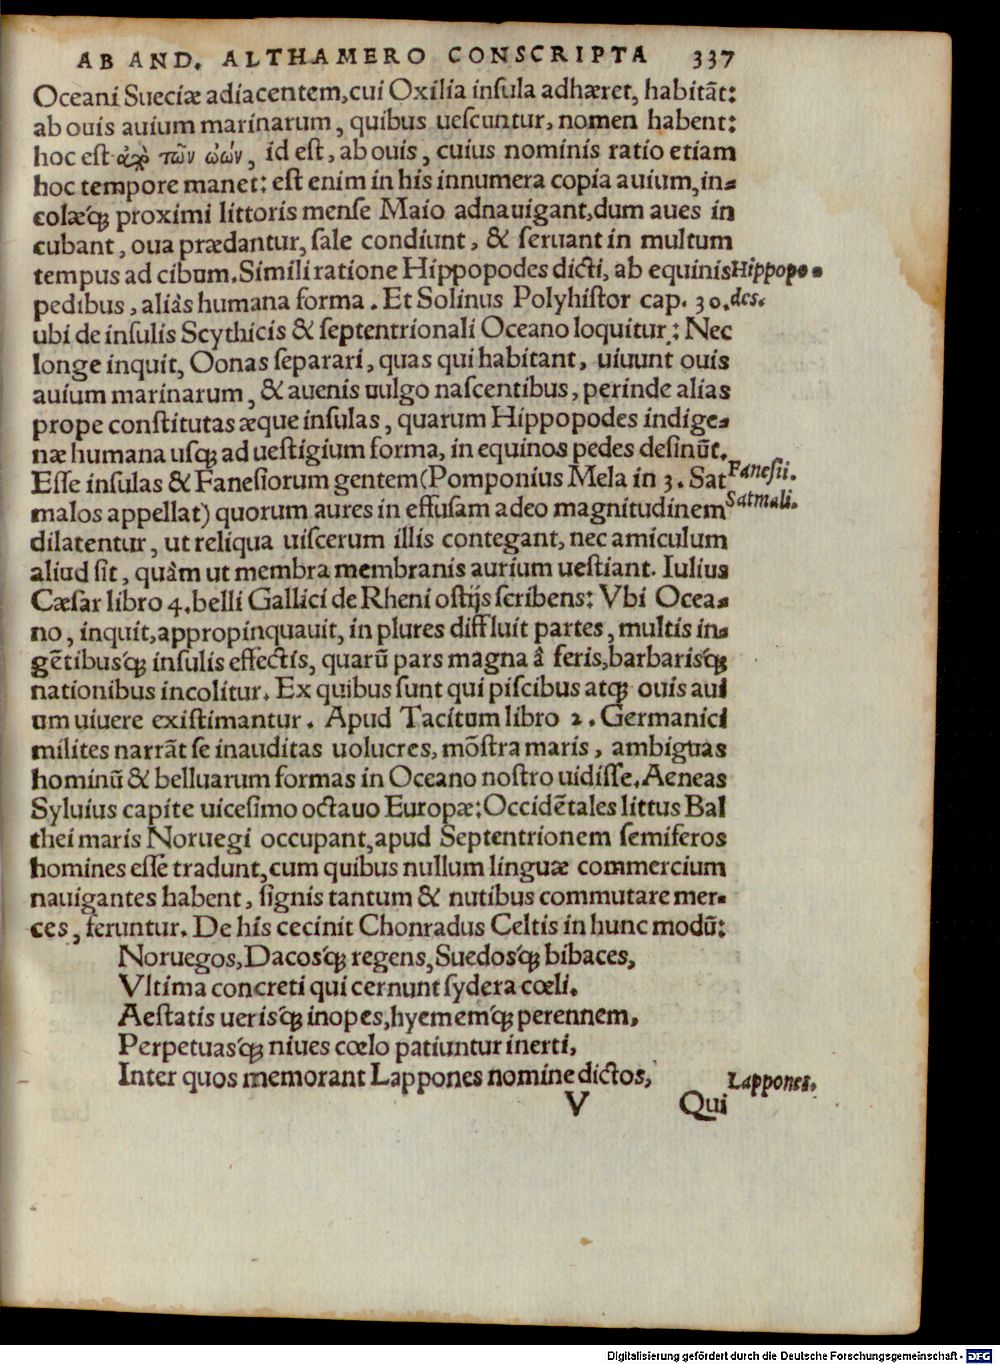 AB AND. ALTHAMERO CONSCRIPTA 337
Oceani Sueciæ adiacentem, cui Oxilia insula adhæret, habitãt:
ab ouis auium marinarum, quibus uescuntur, nomen habent:
hoc est τῶν ὠῶν, id est, ab ouis, cuius nominis ratio etiam
hoc tempore manet: est enim in his innumera copia auium, in-
colæq́ꝫ proximi littoris mense Maio adnauigant, dum aues in
cubant, oua prædantur, sale condiunt, & seruant in multum
tempus ad cibum. Simili ratione Hippopodes dicti, ab equinis
Hippopo-
pedibus, aliàs humana forma. Et Solinus Polyhistor cap. 30.
des.
ubi de insulis Scythicis & septentrionali Oceano loquitur: Nec
longe inquit, Oonas separari, quas qui habitant, uiuunt ouis
auium marinarum, & auenis uulgo nascentibus, perinde alias
prope constitutas æque insulas, quarum Hippopodes indige-
næ humana usqꝫ ad uestigium forma, in equinos pedes desinũt.
Esse insulas & Fanesiorum gentem (Pomponius Mela in 3. Sat
Fanesii.
malos appellat) quorum aures in effusam adeo magnitudinem
Satmali.
dilatentur, ut reliqua uiscerum illis contegant, nec amiculum
aliud sit, quàm ut membra membranis aurium uestiant. Iulius
Cæsar libro 4. belli Gallici de Rheni ostijs scribens: Vbi Ocea-
no, inquit, appropinquauit, in plures diffluit partes, multis in-
gẽtibusq́ꝫ insulis effectis, quarũ pars magna â feris, barbarisq́ꝫ
nationibus incolitur. Ex quibus sunt qui piscibus atqꝫ ouis aui
um uiuere existimantur. Apud Tacitum libro 2. Germanici
milites narrãt se inauditas uolucres, mõstra maris, ambiguas
hominũ & belluarum formas in Oceano nostro uidisse. Aeneas
Syluius capite uicesimo octauo Europæ: Occidẽtales littus Bal
thei maris Noruegi occupant, apud Septentrionem semiferos
homines esse tradunt, cum quibus nullum linguæ commercium
nauigantes habent, signis tantum & nutibus commutare mer-
ces, feruntur. De his cecinit Chonradus Celtis in hunc modũ:
Noruegos, Dacosq́ꝫ regens, Suedosq́ꝫ bibaces,
Vltima concreti qui cernunt sydera cœli.
Aestatis uerisq́ꝫ inopes, hyememq́ꝫ perennem,
Perpetuasq́ꝫ niues cœlo patiuntur inerti,
Inter quos memorant Lappones nomine dictos,
Lappones.
V Qui
Digitalisierung gefördert durch die Deutsche Forschungsgemeinschaft - DFG